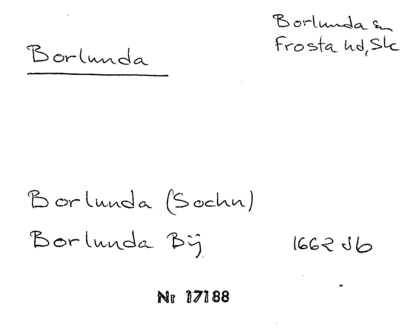 Borlunda
Borlunda sn
Frosta hd, Sk
Borlunda (Sochn)
Borlunda Bÿ 1662 Jb
Nr 17188